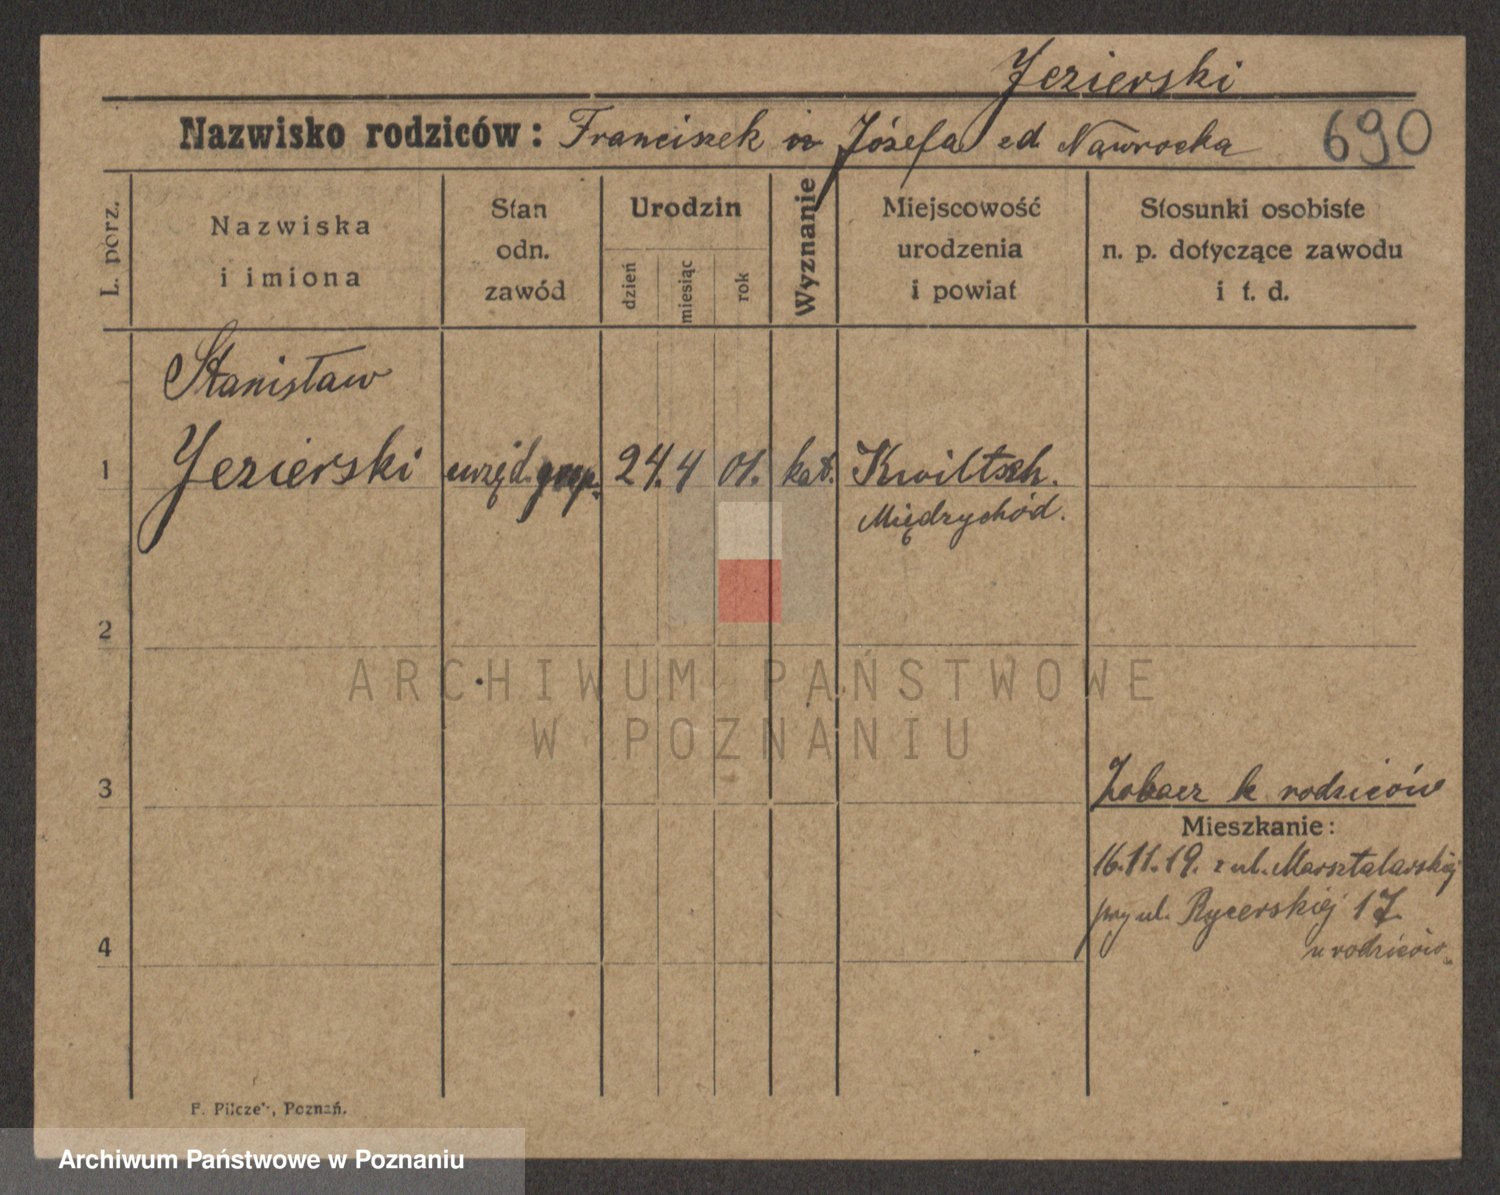 Jezierski
Nazwisko rodziców: Franciszek Józefa ed Nawrocka 690
L. porz.
Nazwiska
i imiona
Stan
odn.
zawód
Urodzin
dzień
miesiąc
rok
Wyznanie
Miejscowość
urodzenia
i powiat
Stosunki osobiste
n. p. dotyczące zawodu
i t. d.
Stanisław
1 Jezierski urzęd. 24. 4 01. kat. Kwiltsch.
Międzychód.
2
ARCHIWUM PAŃSTWOWE
W POZNANIU
3
Zobacz k rodziców
Mieszkanie:
16.11.19. z ul. Marsztalarskiej
przy ul. Rycerskiej 17
u rodziców.
4
F. Pilczek, Poznań.
Archiwum Państwowe w Poznaniu